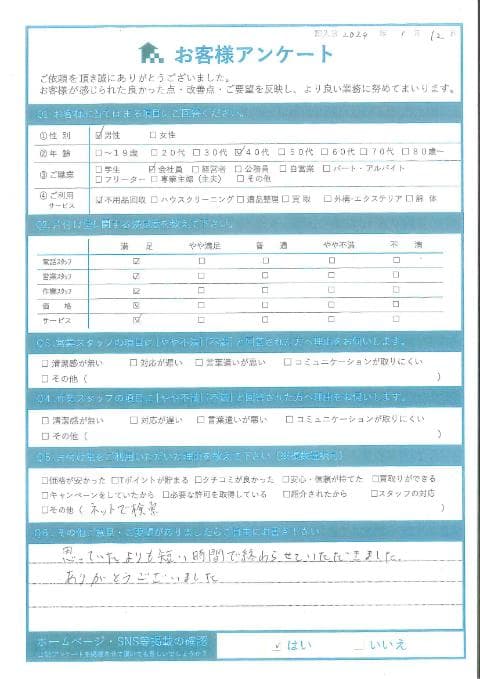 記入日 2024 年 月 12 日
お客様アンケート
ご依頼を頂き誠にありがとうございました。
お客様が感じられた良かった点・改善点・ご要望を反映し、より良い業務に努めてまいります。
Q1. お客様に当てはまる項目にご回答ください。
①性 別 ☑男性 □女性
②年 齢 □～19歳 □20代 □30代 ☑40代 □50代 □60代 □70代 □80歳～
③ご職業 □学生 ☑会社員 □経営者 □公務員 □自営業 □パート・アルバイト
□フリーター □専業主婦（主夫） □その他
④ご利用サービス ☑不用品回収 □ハウスクリーニング □遺品整理 □買取 □外構・エクステリア □解体
満足 やや満足 普通 やや不満 不満
電話スタッフ ☑ □ □ □ □
営業スタッフ ☑ □ □ □ □
作業スタッフ ☑ □ □ □ □
価格 ☑ □ □ □ □
サービス ☑ □ □ □ □
Q3. 営業スタッフの項目に「やや不満」「不満」と回答された方へ理由をお伺いします。
□清潔感が無い □対応が遅い □言葉遣いが悪い □コミュニケーションが取りにくい
□その他（ ）
Q4. 作業スタッフの項目に「やや不満」「不満」と回答された方へ理由をお伺いします。
□清潔感が無い □対応が遅い □言葉遣いが悪い □コミュニケーションが取りにくい
□その他（ ）
□価格が安かった □Tポイントが貯まる □クチコミが良かった □安心・信頼が持てた □買取りができる
□キャンペーンをしていたから □必要な許可を取得している □紹介されたから □スタッフの対応
□その他（ ネットで検索 ）
Q6. その他ご意見・ご要望がありましたらご自由にお書き下さい
思っていたよりも短い時間で終わらせていただきました。
ありがとうございました
ホームページ・SNS等掲載の確認 ☑はい □いいえ